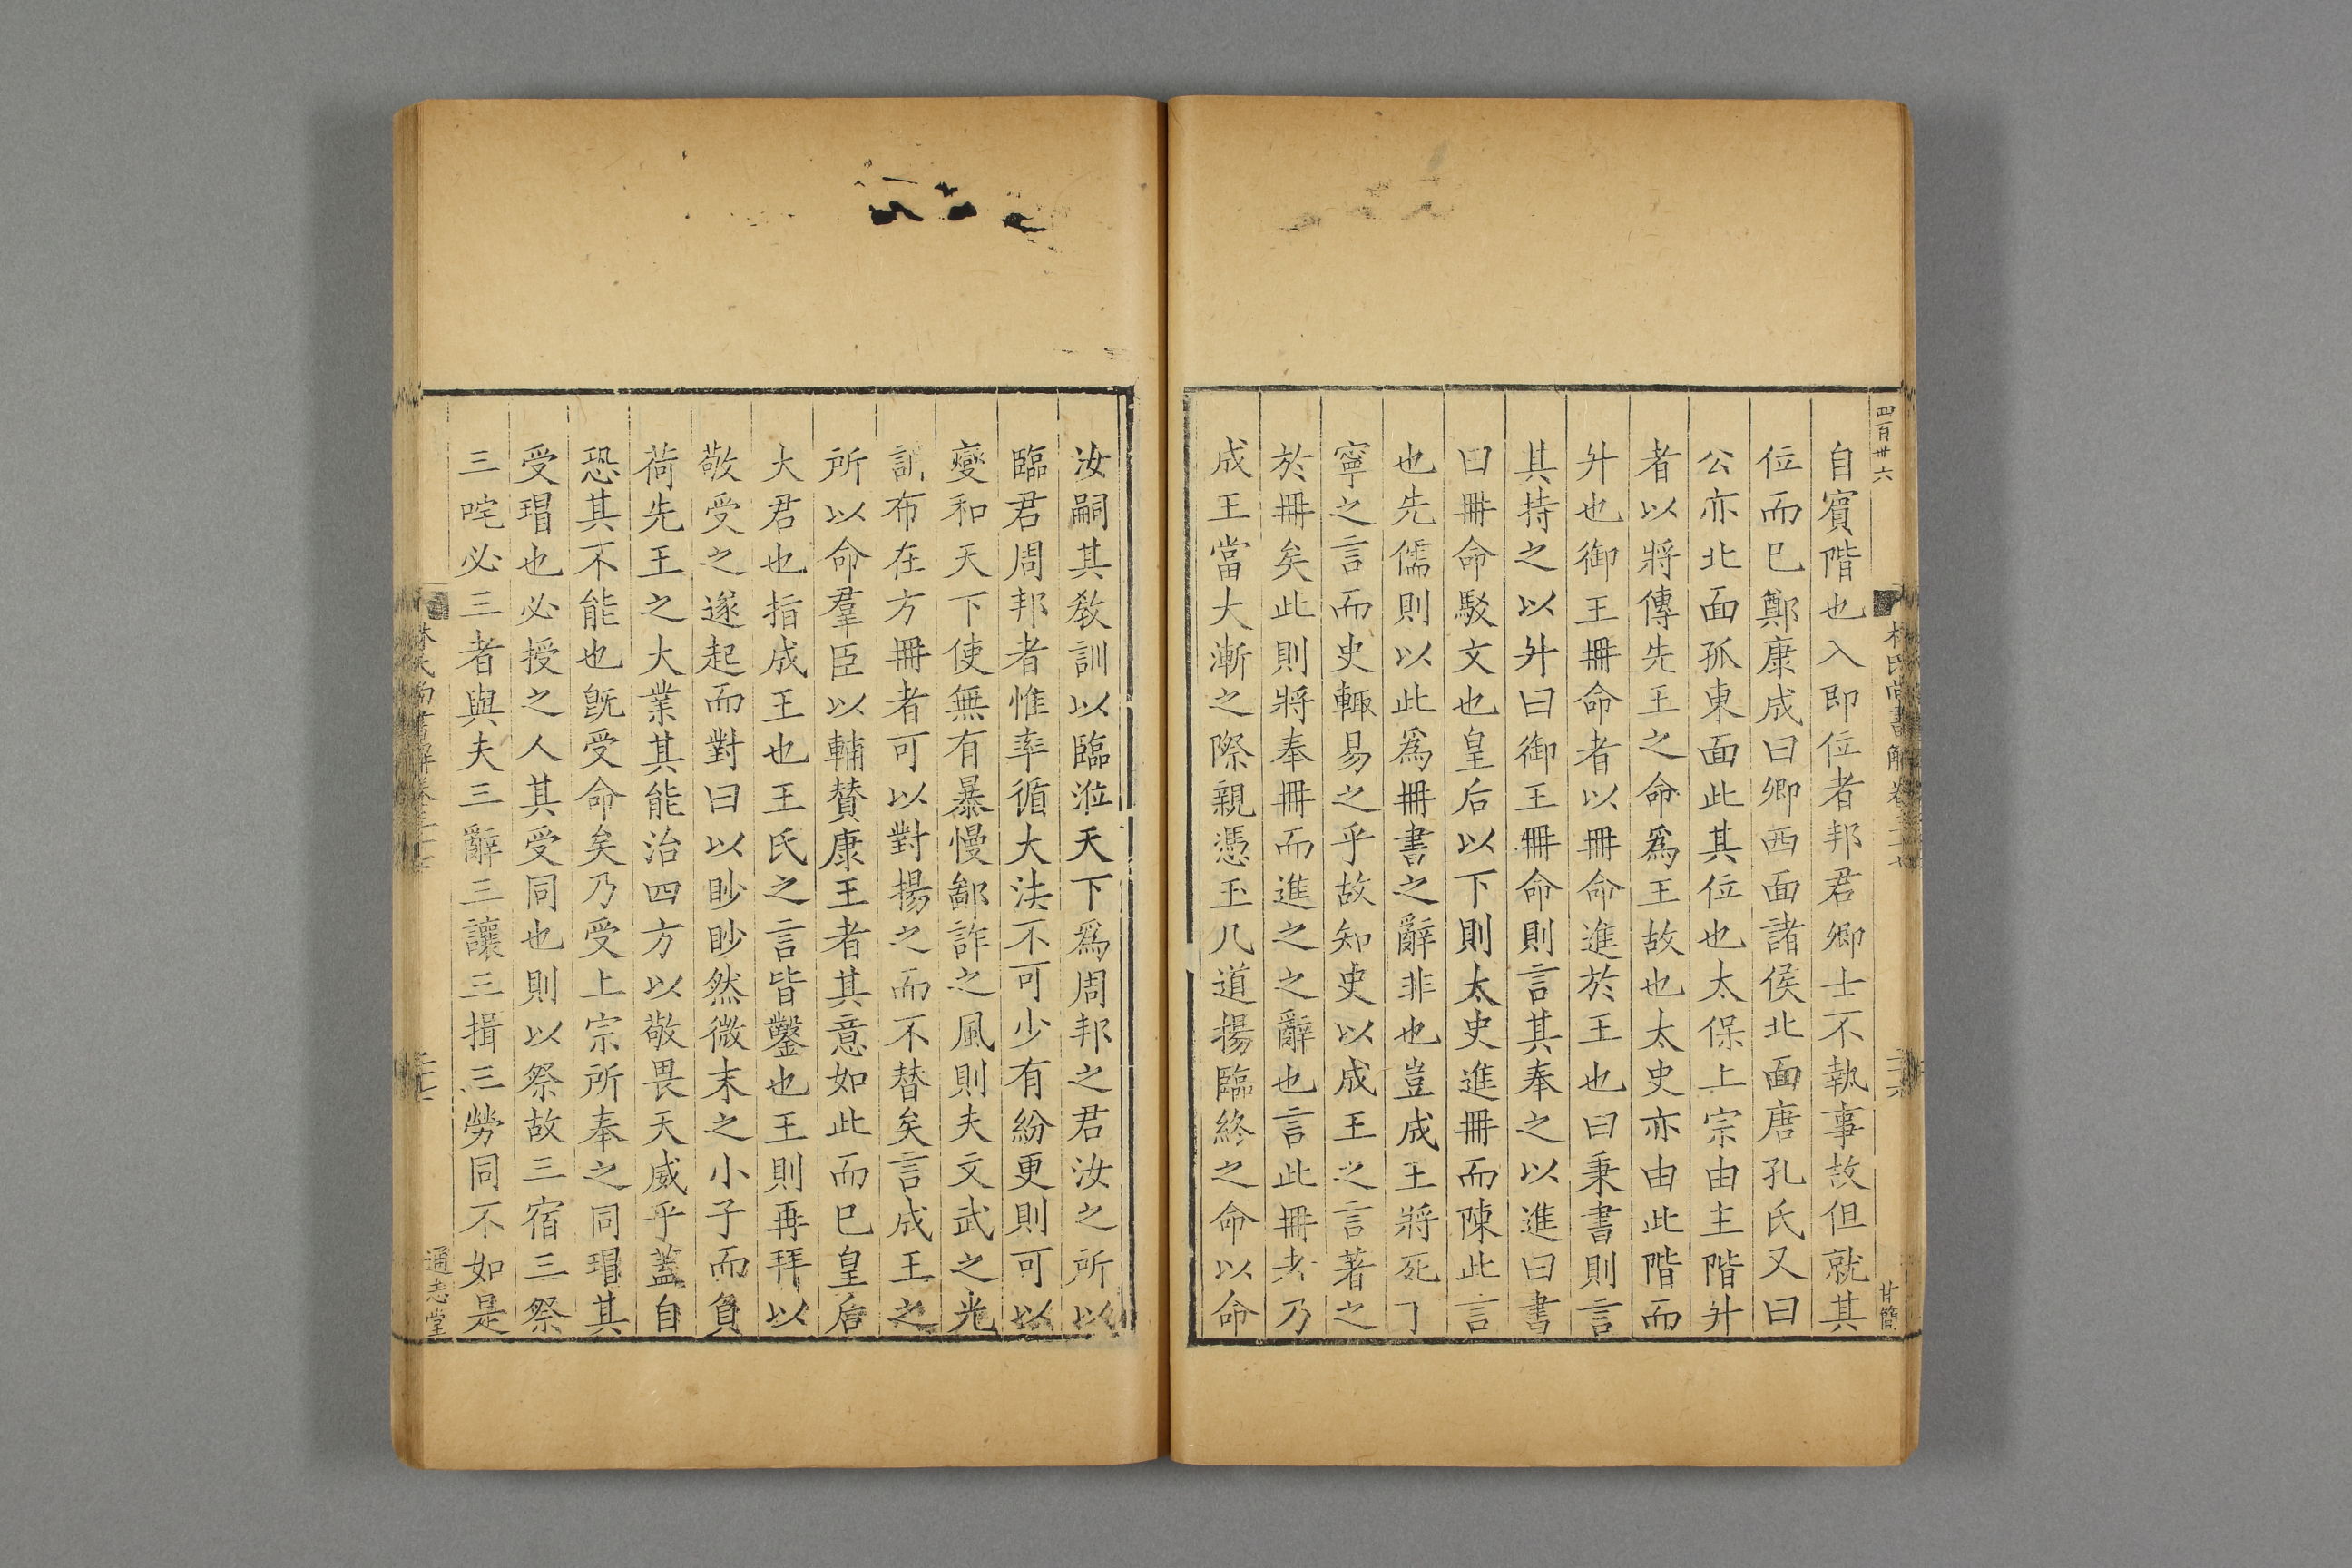 四百卅六
自賔階也入即位者邦君卿士不執事故但就其
位而巳鄭康成曰卿西面諸侯北面唐孔氏又曰
公亦北面孤東面此其位也太保上宗由主階升
者以將傳先王之命爲王故也太史亦由此階而
升也御王冊命者以冊命進於王也曰秉書則言
其持之以升曰御王冊命則言其奉之以進曰書
曰冊命駁文也皇后以下則太史進冊而陳此言
也先儒則以此爲冊書之辭非也豈成王將死丁
寧之言而史輙易之乎故知史以成王之言著之
於冊矣此則將奉冊而進之之辭也言此冊者乃
成王當大漸之際親憑玉几道揚臨終之命以命
林氏尚書解卷三十七
二十六
甘簡
汝嗣其敎訓以臨涖天下爲周邦之君汝之所以
臨君周邦者惟率循大法不可少有紛更則可以
燮和天下使無有暴慢鄙詐之風則夫文武之光
訓布在方冊者可以對揚之而不替矣言成王之
所以命羣臣以輔賛康王者其意如此而巳皇后
大君也指成王也王氏之言皆鑿也王則再拜以
敬受之遂起而對曰以眇眇然微末之小子而負
荷先王之大業其能治四方以敬畏天威乎蓋自
恐其不能也旣受命矣乃受上宗所奉之同瑁其
受瑁也必授之人其受同也則以祭故三宿三祭
三咤必三者與夫三辭三讓三揖三勞同不如是
林氏尚書解卷三十七
二十七
通志堂